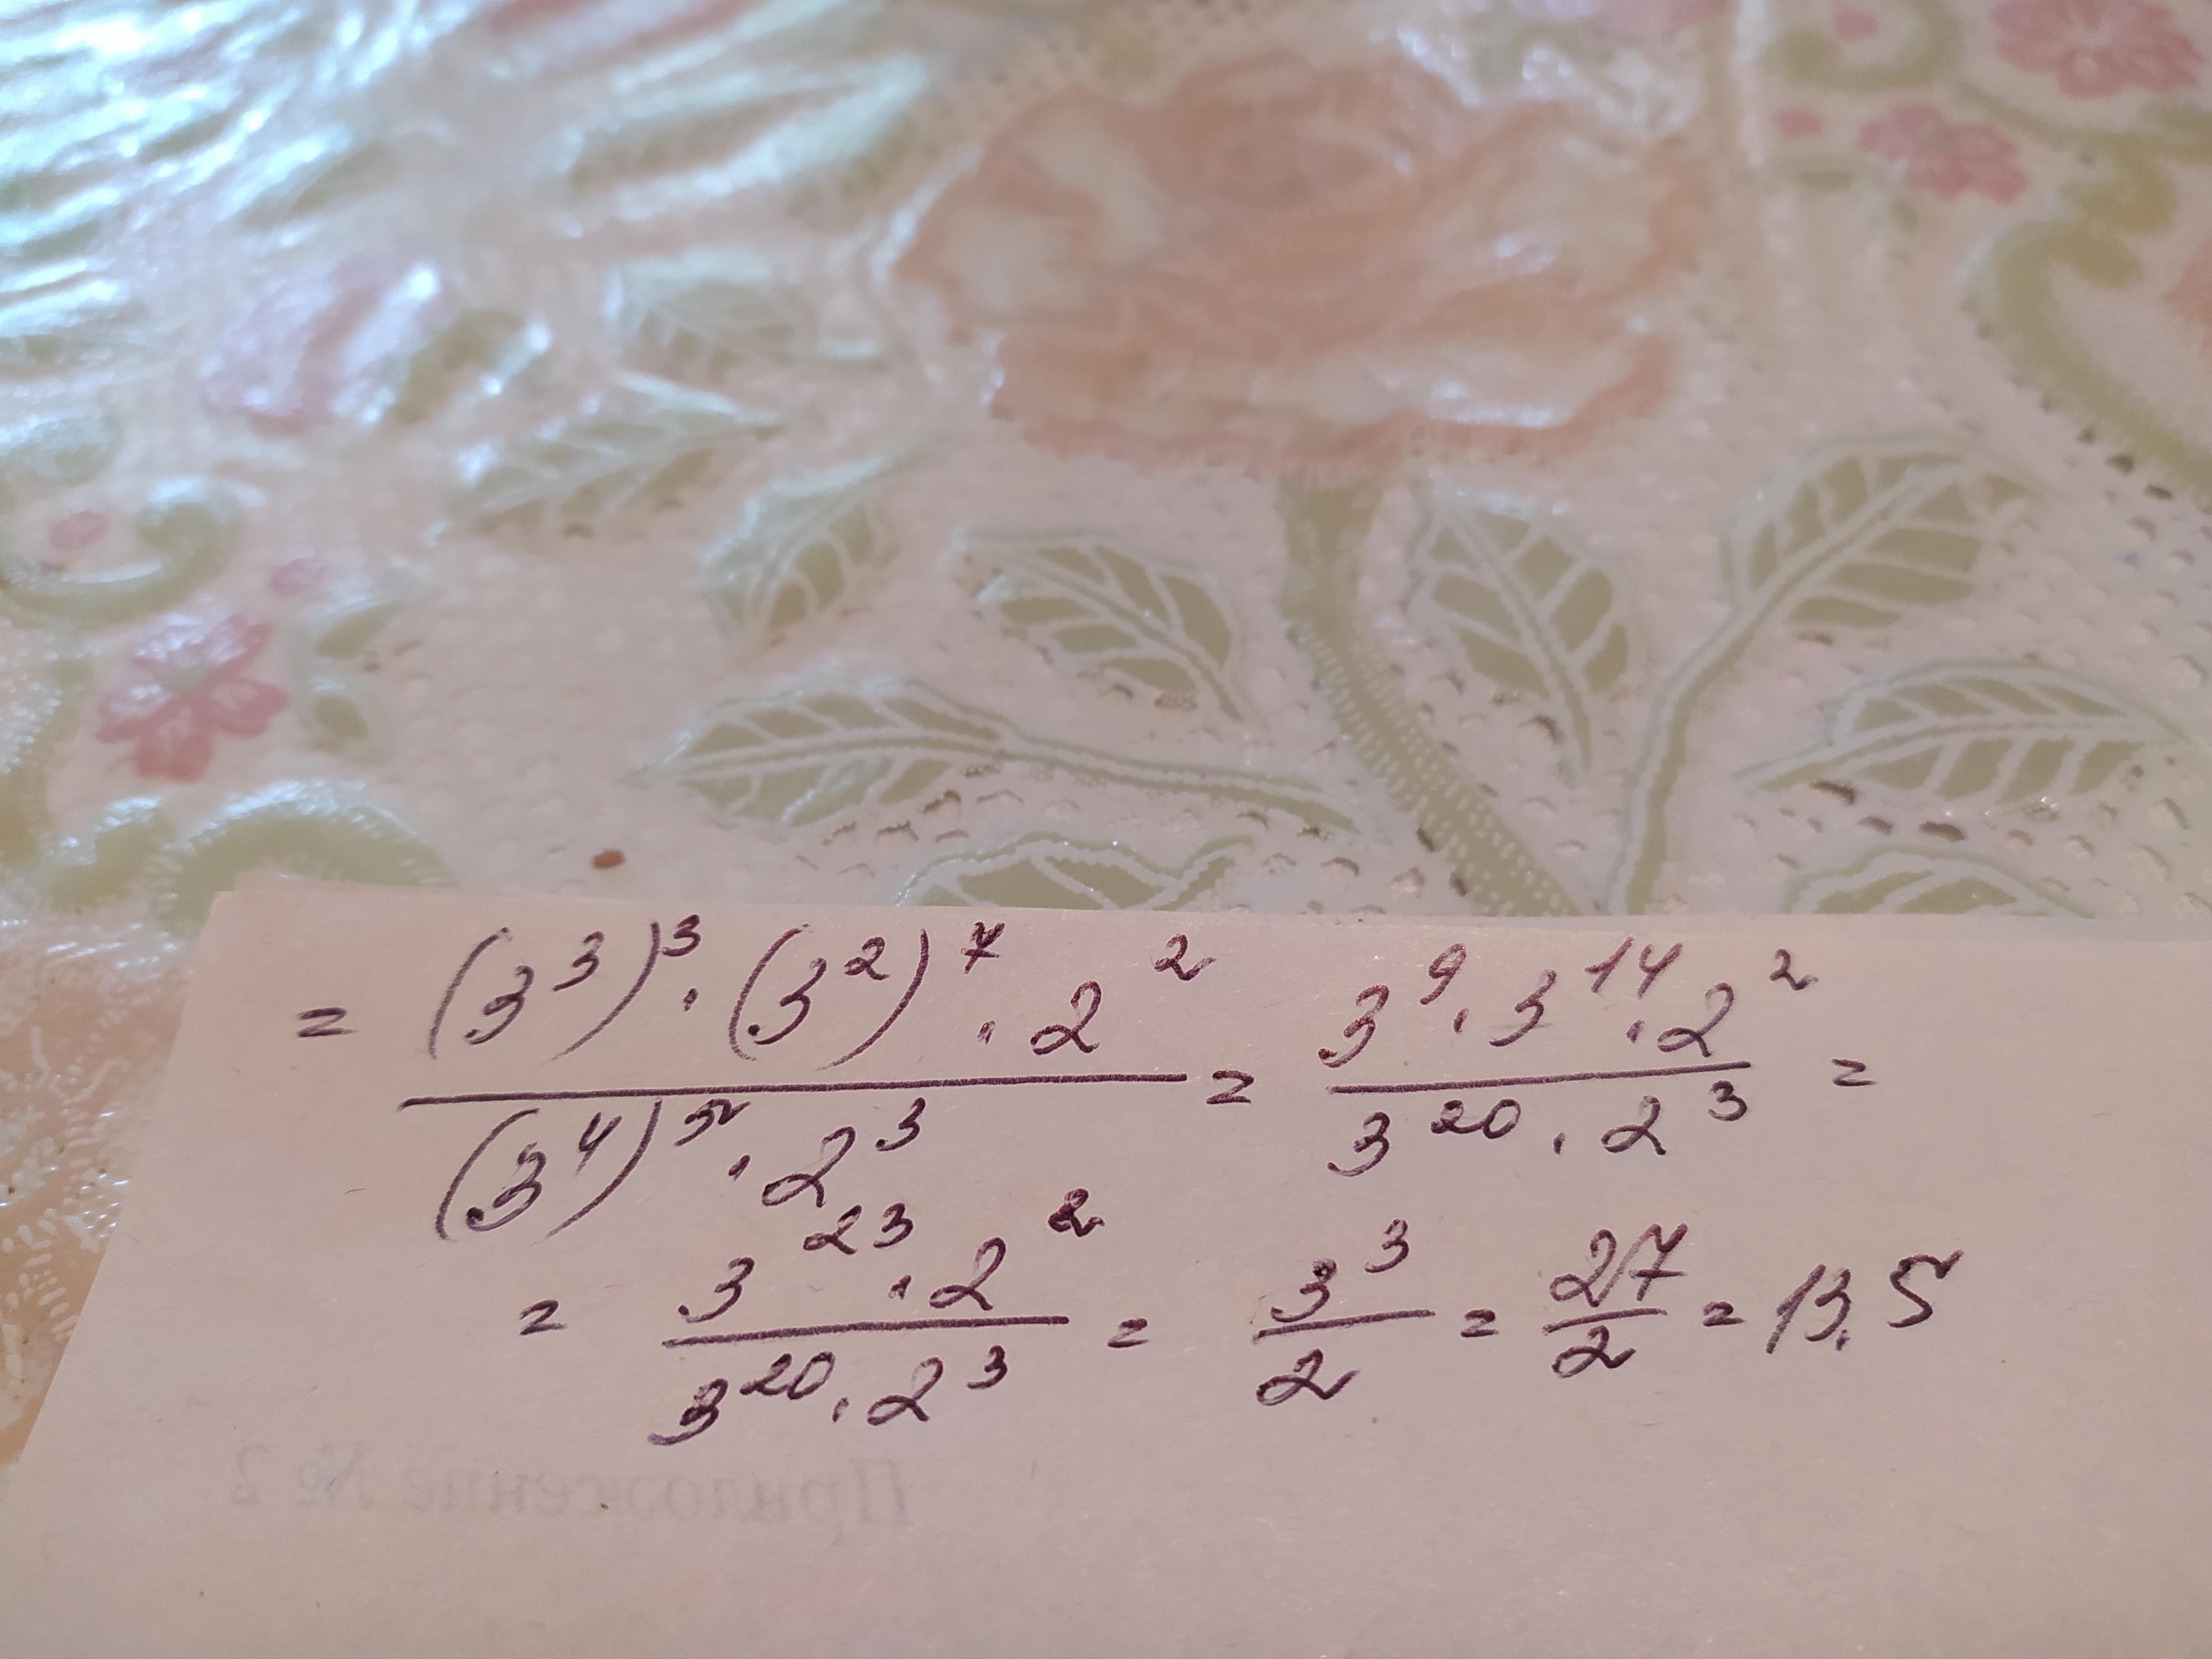 = (3³)³ · (3²)⁷ · 2² / (3⁴)⁵ · 2³ = 3⁹ · 3¹⁴ · 2² / 3²⁰ · 2³ =
= 3²³ · 2² / 3²⁰ · 2³ = 3³ / 2 = 27 / 2 = 13,5
Приложение № 2